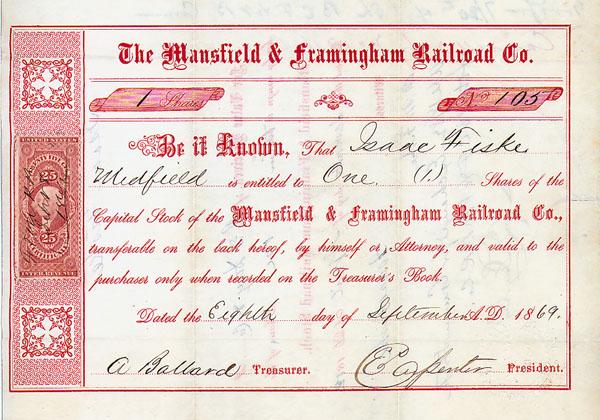 The Mansfield & Framingham Railroad Co.
1 Shares No 105
Be it Known, That Isaac Fiske
Medfield is entitled to One (1.) Shares of the
Capital Stock of the Mansfield & Framingham Railroad Co.,
transferable on the back hereof, by himself or Attorney, and valid to the
purchaser only when recorded on the Treasurer's Book.
Dated the Eighth day of September A.D. 1869.
A Ballard Treasurer. E Carpenter President.
UNITED STATES
25
25
INTER. REVENUE